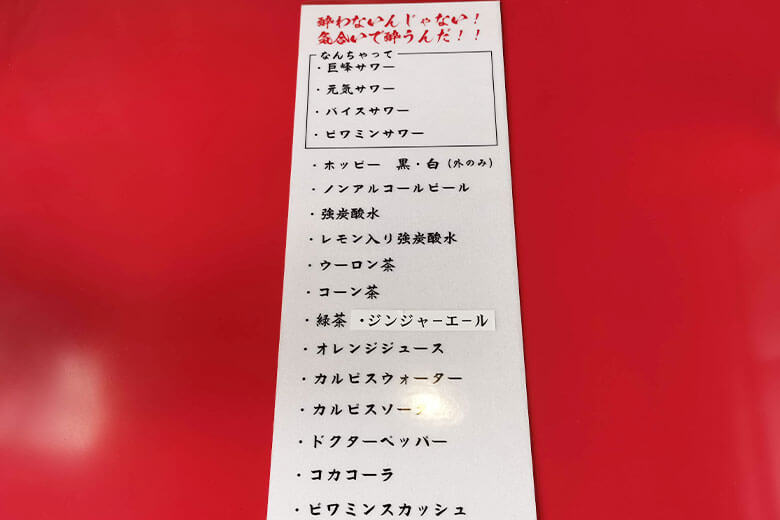 酔わないんじゃない!
気合いで酔うんだ!!
なんちゃって
・巨峰サワー
・元気サワー
・バイスサワー
・ビワミンサワー
・ホッピー 黒・白(外のみ)
・ノンアルコールビール
・強炭酸水
・レモン入り強炭酸水
・ウーロン茶
・コーン茶
・緑茶 ・ジンジャーエール
・オレンジジュース
・カルピスウォーター
・カルピスソーダ
・ドクターペッパー
・コカコーラ
・ビワミンスカッシュ